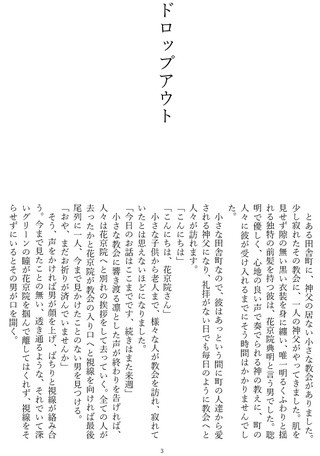 ドロップアウト
とある田舎町に、神父の居ない小さな教会がありました。
少し寂れたその教会に、一人の神父がやってきました。肌を
見せず隙の無い黒い衣装を身に纏い、唯一明るくふわりと揺
れる独特の前髪を持つ彼は、花京院典明と言う男でした。聡
明で優しく、心地の良い声で奏でられる神の教えに、町の
人々に彼が受け入れるまでにそう時間はかかりませんでし
た。
小さな田舎町なので、彼はあっという間に町の人達から愛
される神父になり、礼拝がない日でも毎日のように教会へと
人々が訪れます。
「こんにちは」
「こんにちは、花京院さん」
小さな子供から老人まで、様々な人が教会を訪れ、寂れて
いたとは思えないほどになりました。
「今日のお話はここまでです、続きはまた来週」
小さな教会に響き渡る凛とした声が終わりを告げれば、
人々は花京院へと別れの挨拶をして去っていく。全ての人が
去ったかと花京院が教会の入り口へと視線を向ければ最後
尾列に一人、今まで見かけたことのない男を見つける。
「おや、まだお祈りが済んでいませんか」
そう、声をかければ男が顔を上げ、ぱちりと視線が絡み合
う。今まで見たことの無い、透き通るような、それでいて深
いグリーンの瞳が花京院を掴んで離してはくれず、視線をそ
らせずにいるとその男が口を開く。
3